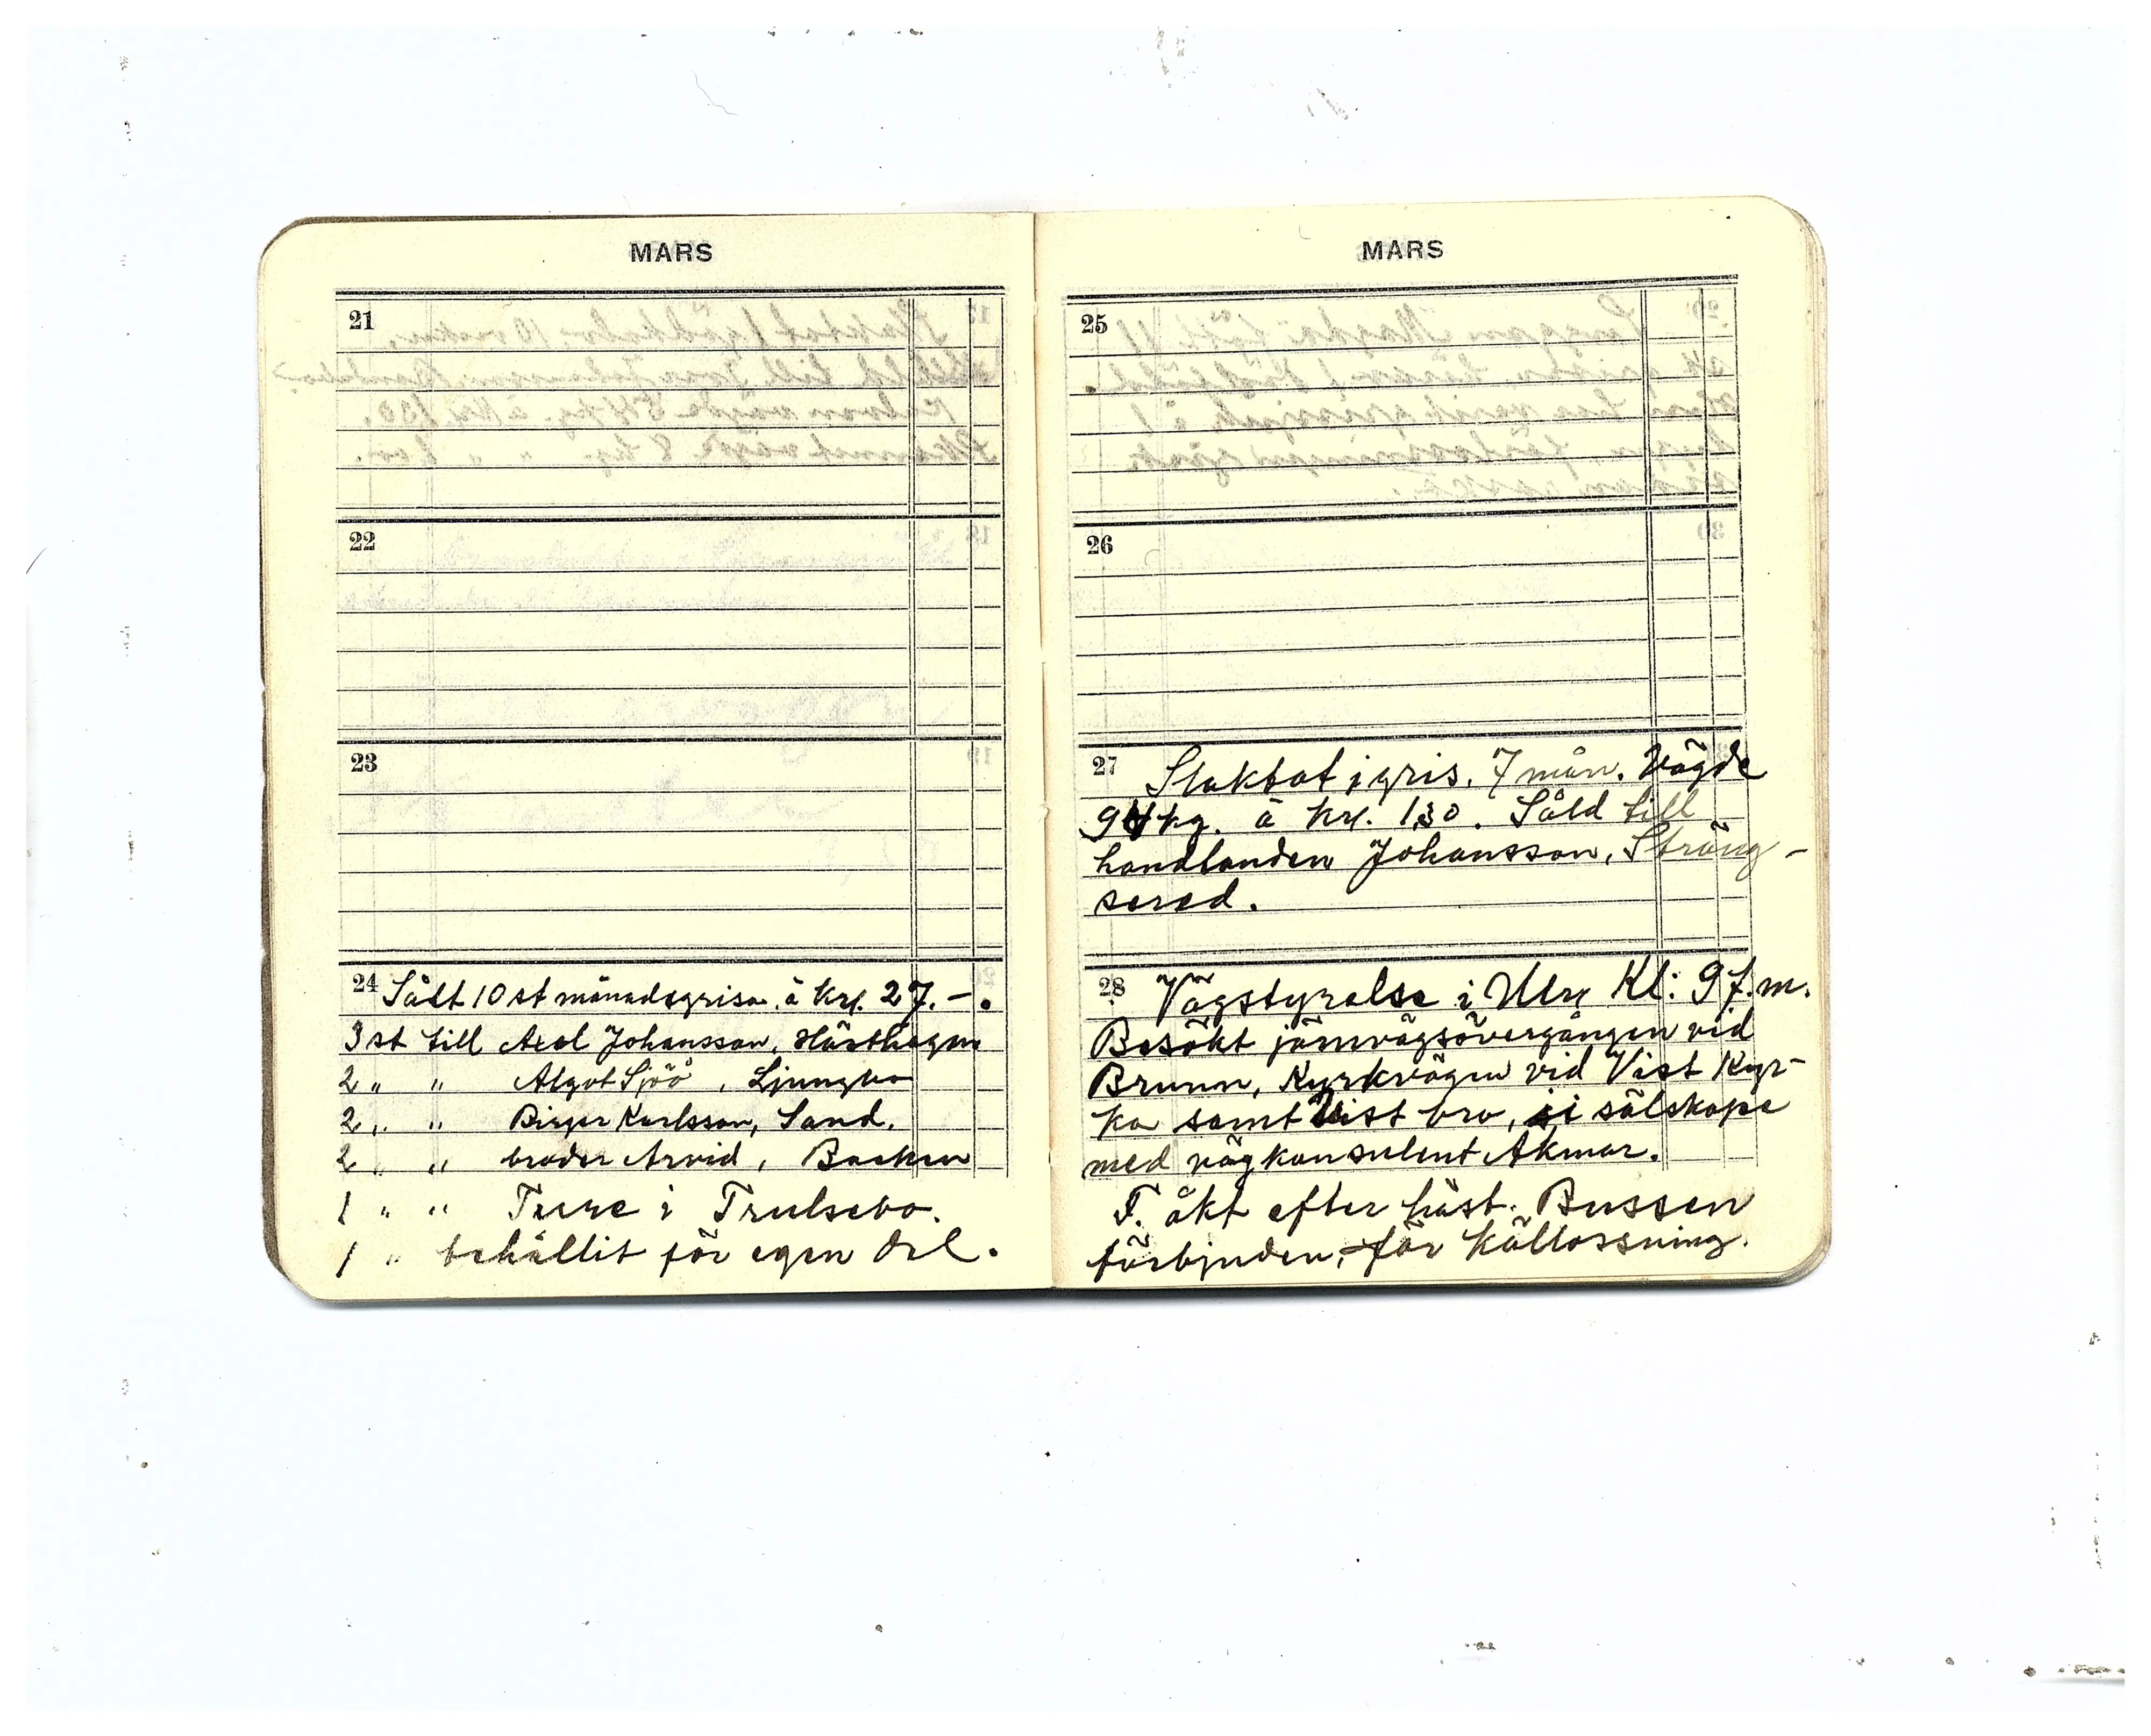 MARS
21
22
23
24 Sålt 10 st månadsgrisa. à Kr. 27.-.
3 st till Axel Johansson, Hästhagen
2 " " Algot Sjöö, Ljungbo
2 " " Birger Karlsson, Sand.
2 " " broder Arvid, Backen
1 " " Ture i Trulsebo.
1 " behållit för egen del.
MARS
25
26
27 Slaktat 1 gris. 7 mån. Vägde
94 kg. à Kr. 1,30. Såld till
handlanden Johansson, Sträng-
sered.
28 Vägstyrelse i Ulr. Kl: 9 f.m.
Besökt järnvägsövergången vid
Brunn, Kyrkvägen vid Vist Kyr-
ka samt Vist bro, i sälskape
med vägkonsulent Akmar.
F. åkt efter häst. Bussen
förbjuden, för Källossning.